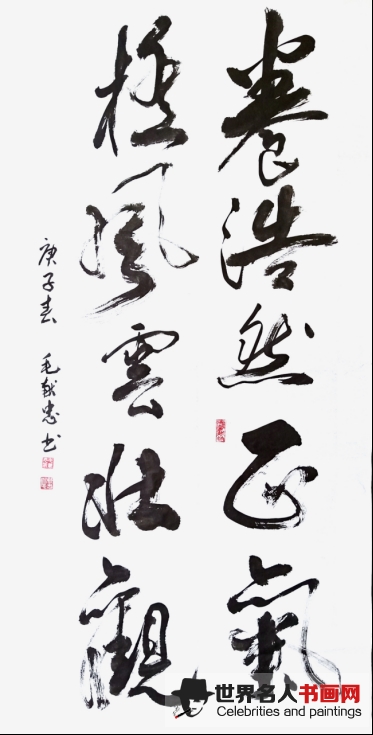 養浩然正氣
極風雲壯觀
庚子春 毛獻忠书
世界名人书画网
Celebrities and paintings